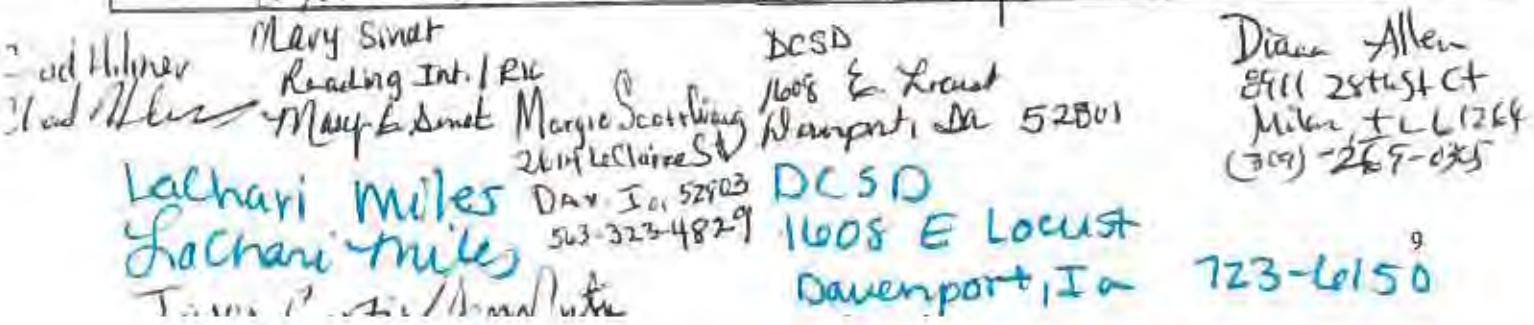 Mary Sinat
Reading Int. / RIC
Mary L Sinat
Margie Scott
2614 LeClaire St
Dav. Ia, 52803
563-323-4829
DCSD
1608 E. Locust
Davenport, Ia 52801
Diana Allen
28th St Ct
Milan, ILL 61264
Lachari Miles
Lachari Miles
DCSD
1608 E Locust
Davenport, Ia 723-6150
9